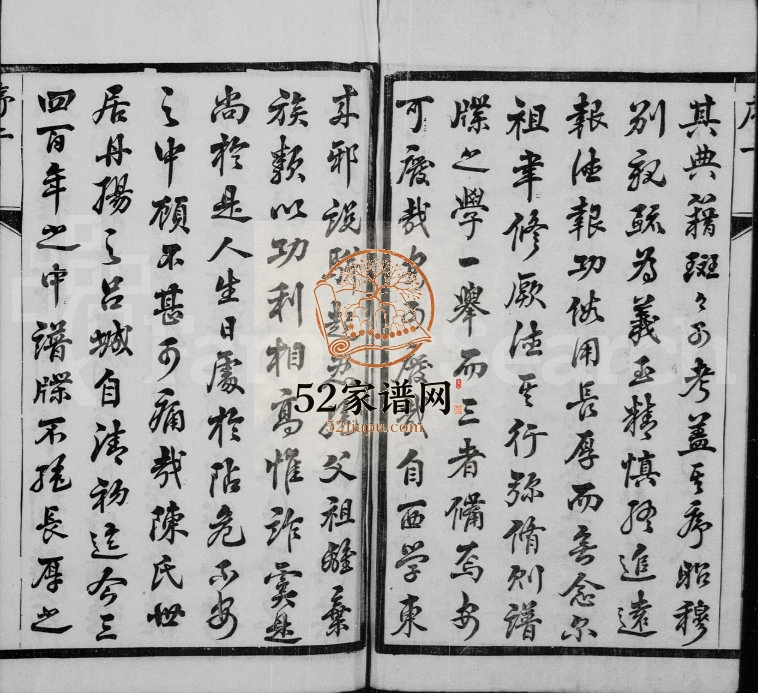 序一
其典籍斑々可考蓋其序昭穆
別親疏為義至精慎終追遠
報法報功俗用長厚而無念尔
祖聿修厥法其行弥脩則譜
牒之學一舉而三者備焉安
可廢哉安可廢哉自西学東
来邪說興起父祖醜棄
族類以功利相高惟詐虞是
尚於是人生日處於阽危不安
之中顧不甚可痛哉陳氏世
居丹揚之呂城自清初迄今三
四百年之中譜牒不絕長厚之
序二
52家谱网
52jiapu.com